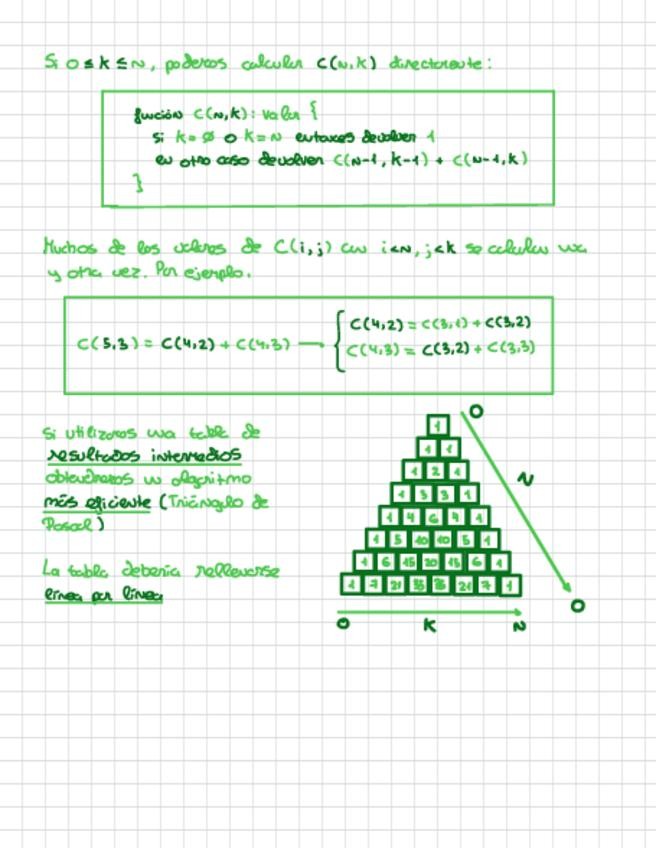 Si 0 ≤ k ≤ N, podemos calcular C(N,k) directamente:
función C(N,k): valor {
si k = ∅ o k = N entonces devolver 1
en otro caso devolver C(N-1, k-1) + C(N-1, k)
}
Muchos de los valores de C(i,j) con i<N, j<k se calculan una
y otra vez. Por ejemplo.
C(5,3) = C(4,2) + C(4,3) → { C(4,2) = C(3,1) + C(3,2)
C(4,3) = C(3,2) + C(3,3)
Si utilizamos una tabla de
resultados intermedios
obtendremos un algoritmo
más eficiente (Triángulo de
Pascal)
La tabla debería rellenarse
línea por línea
0
1
1 1
1 2 1
N
1 3 3 1
1 4 6 4 1
1 5 10 10 5 1
1 6 15 20 15 6 1
1 7 21 35 35 21 7 1
0
0 K N